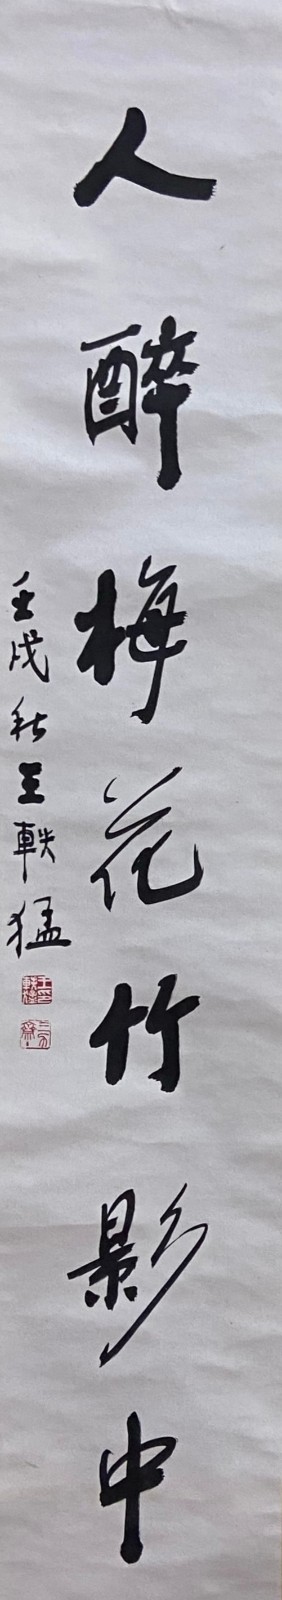 人醉梅花竹影中
壬戌秋王軼猛